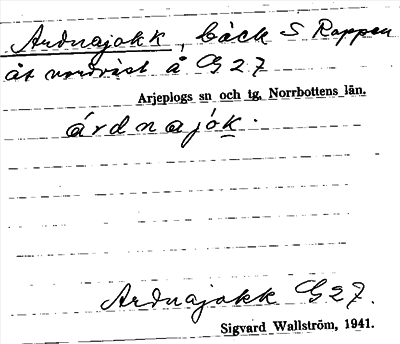 Arđnajokk, bäck S Rappen
åt nordväst å G 27
Arjeplogs sn och tg, Norrbottens län.
árdnajók.
Arđnajokk G 27.
Sigvard Wallström, 1941.